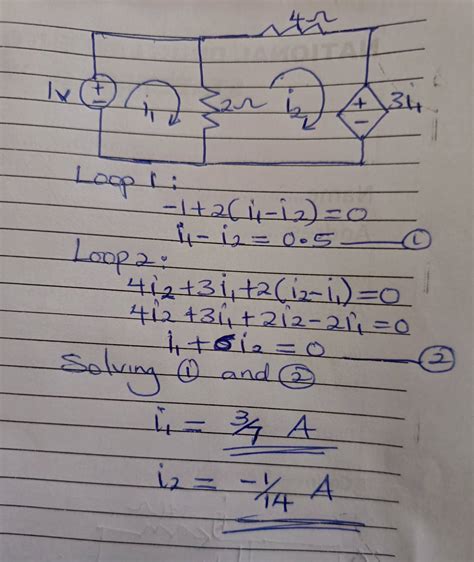 4Ω
1v
i₁
2Ω
i₂
3i₁
Loop 1:
-1+2(i₁-i₂)=0
i₁-i₂=0.5 ①
Loop 2:
4i₂+3i₁+2(i₂-i₁)=0
4i₂+3i₁+2i₂-2i₁=0
i₁+6i₂=0 ②
Solving ① and ②
i₁ = 3/7 A
i₂ = -1/14 A